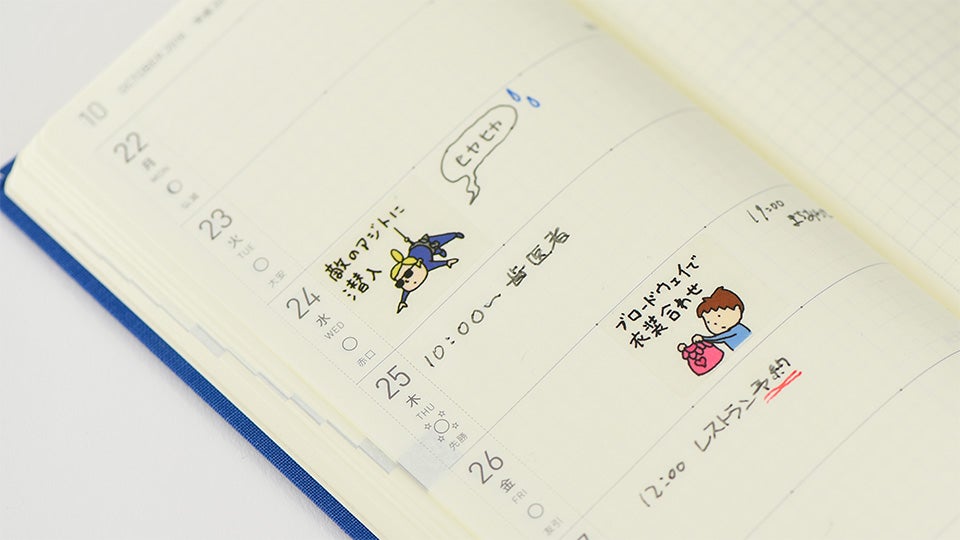 10
22
月
MON
23
火
TUE
大安
24
水
WED
赤口
ヒヤヒヤ
敵のアジトに
潜入
10:00〜 歯医者
25
木
THU
先勝
19:00
ブロードウェイで
衣装合わせ
26
金
FRI
友引
12:00 レストラン予約